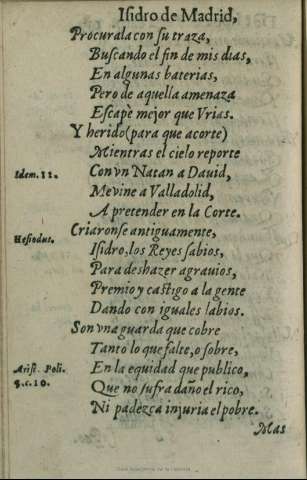 Isidro de Madrid,
Procurala con su traza,
Buscando el fin de mis dias,
En algunas baterias,
Pero de aquella amenaza
Escapè mejor que Vrias.
Y herido (para que acorte)
Mientras el cielo reporte
Idem. 11.
Con vn Natan a Dauid,
Me vine a Valladolid,
A pretender en la Corte.
Hesiodus.
Criaronse antiguamente,
Isidro, los Reyes sabios,
Para deshazer agrauios,
Premio y castigo a la gente
Dando con iguales labios.
Son vna guarda que cobre
Tanto lo que falte, o sobre,
Arist. Poli.
5.c.10.
En la equidad que publico,
Que no sufra daño el rico,
Ni padezca injuria el pobre.
Mas